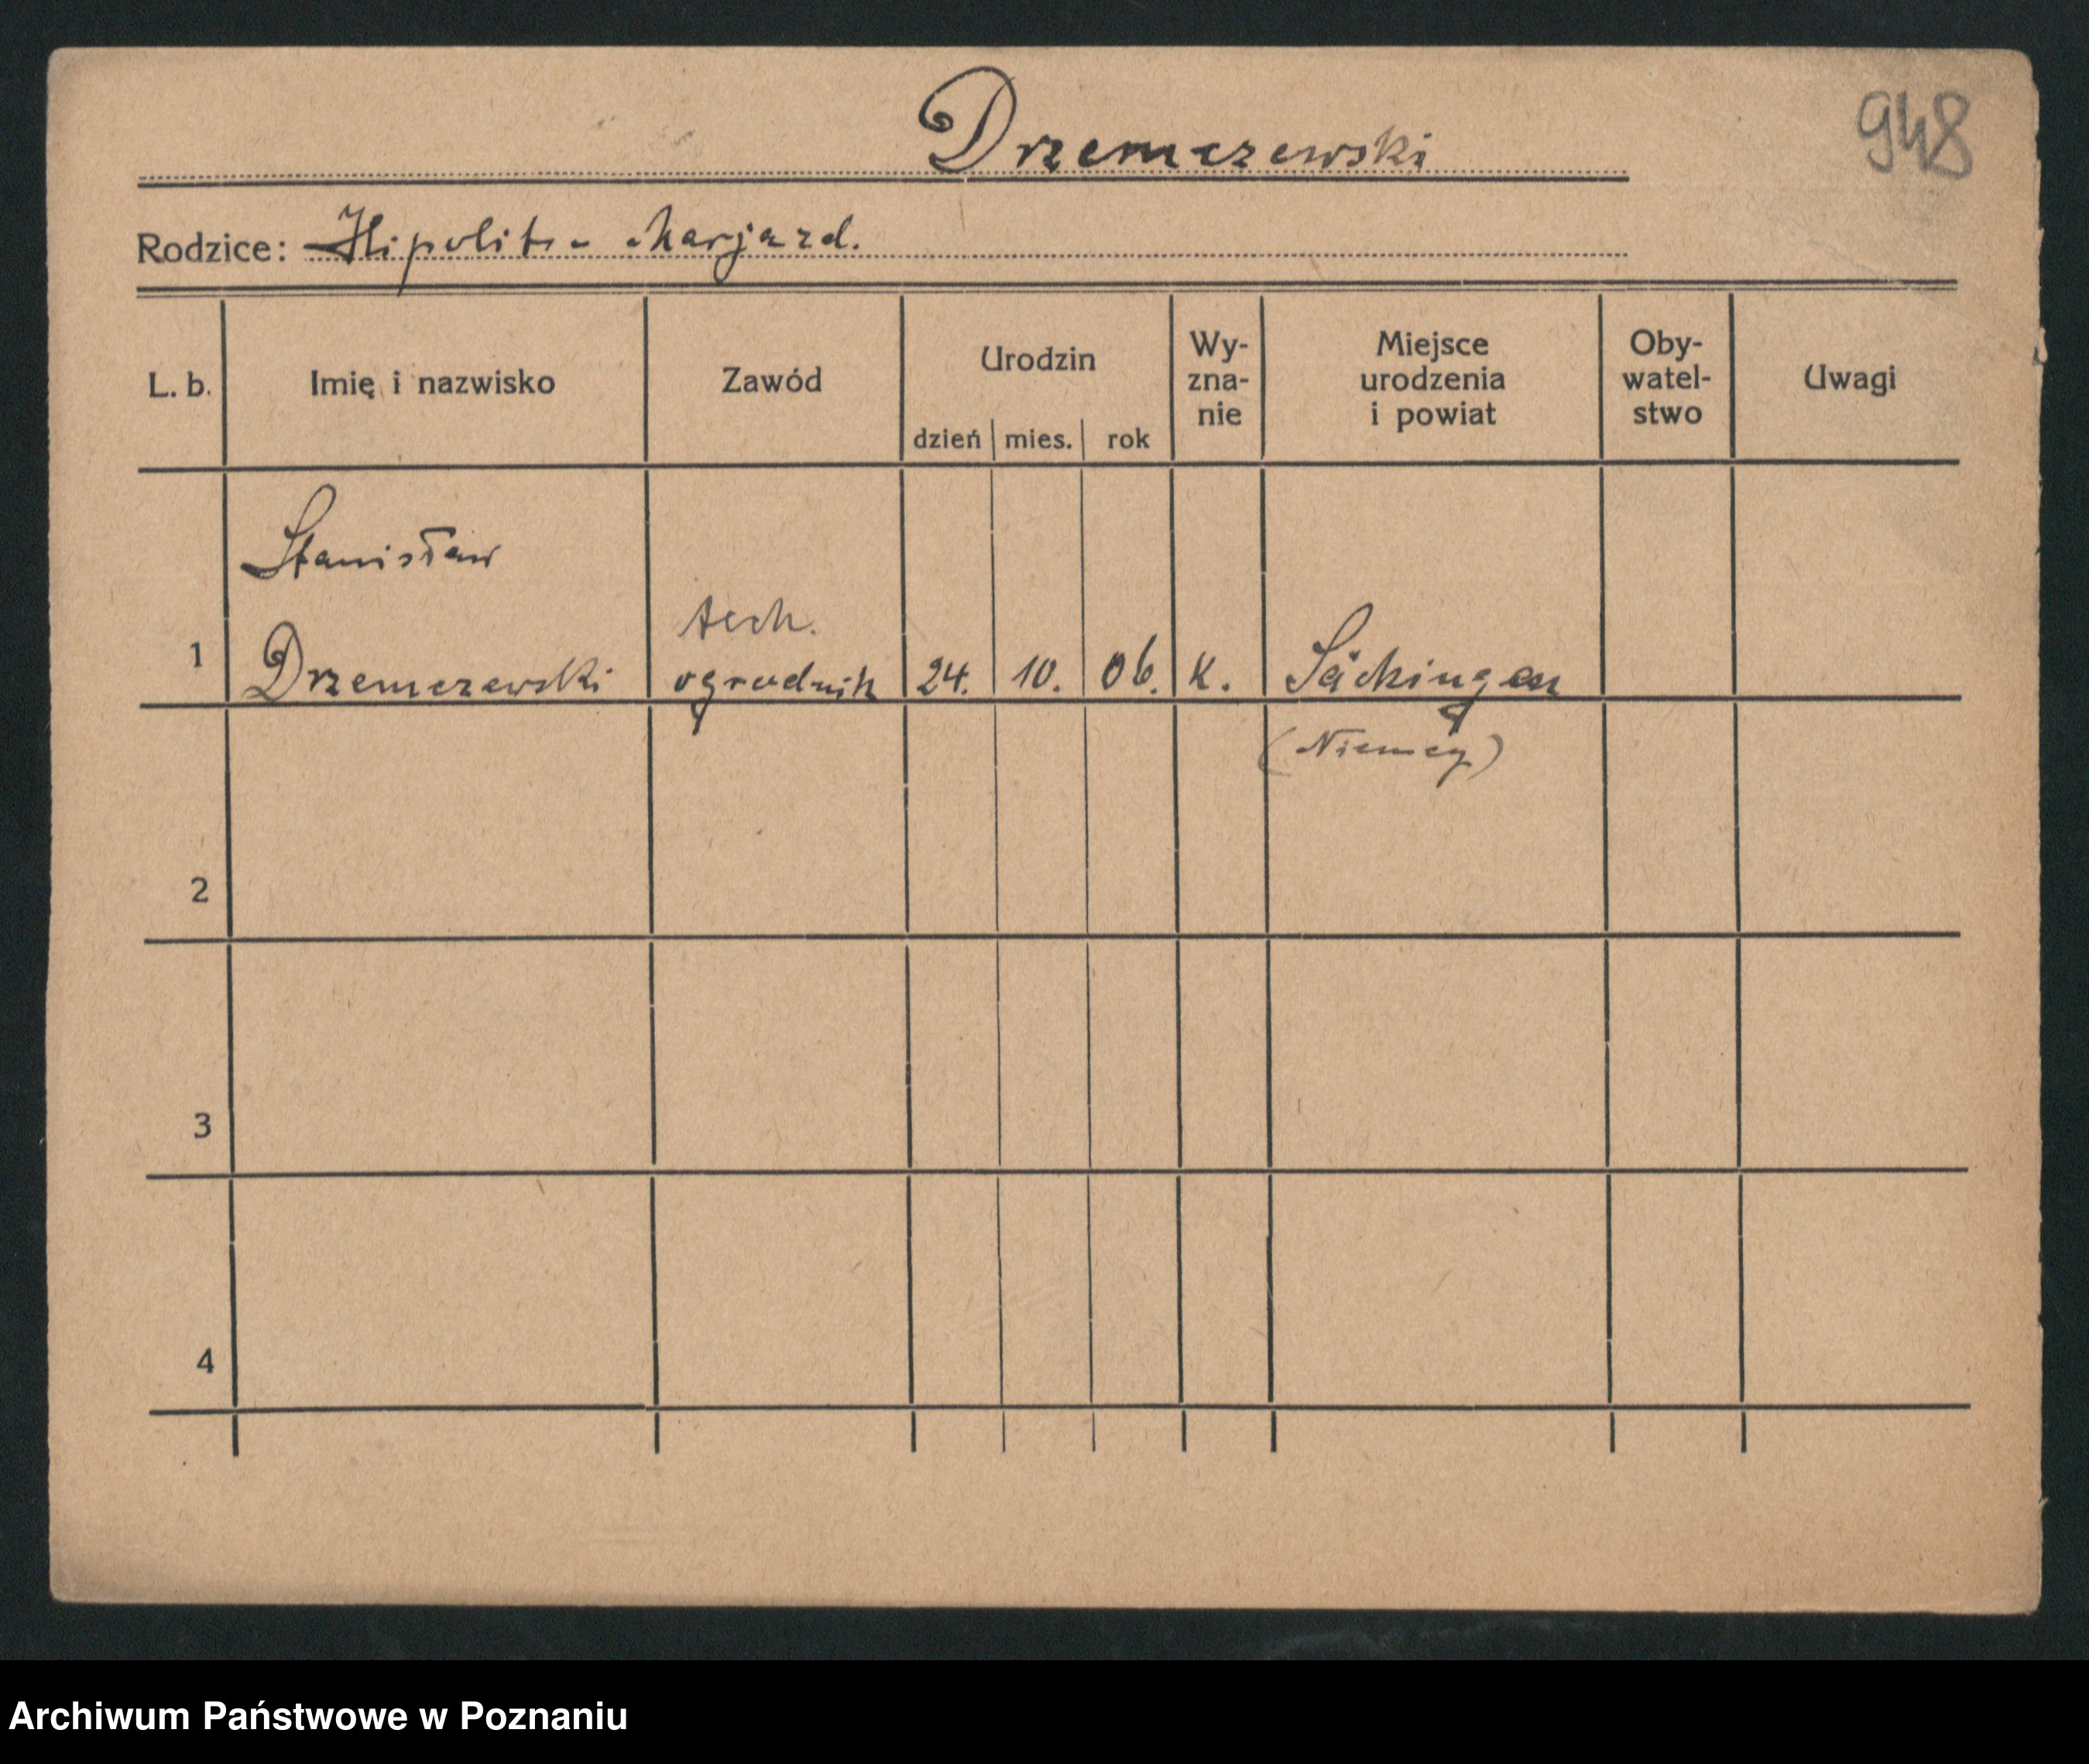 948
Drzemczewski
Rodzice: Hipolit - Marja zd.
L. b. Imię i nazwisko Zawód Urodzin dzień mies. rok Wy-zna-nie Miejsce urodzenia i powiat Oby-watel-stwo Uwagi
Stanisław
tech.
1 Drzemczewski ogrodnik 24. 10. 06. k. Säckingen
(Niemcy)
2
3
4
Archiwum Państwowe w Poznaniu